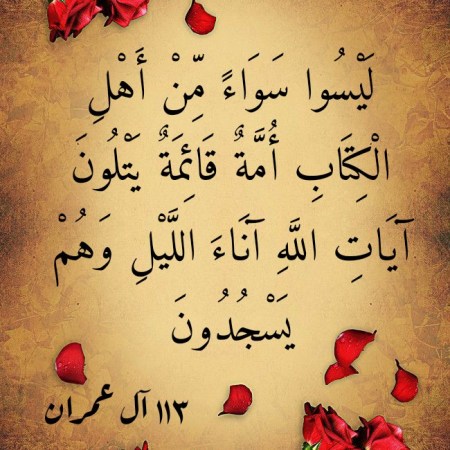 لَيْسُوا سَوَاءً مِّنْ أَهْلِ
الْكِتَابِ أُمَّةٌ قَائِمَةٌ يَتْلُونَ
آيَاتِ اللَّهِ آنَاءَ اللَّيْلِ وَهُمْ
يَسْجُدُونَ
١١٣ آل عمران